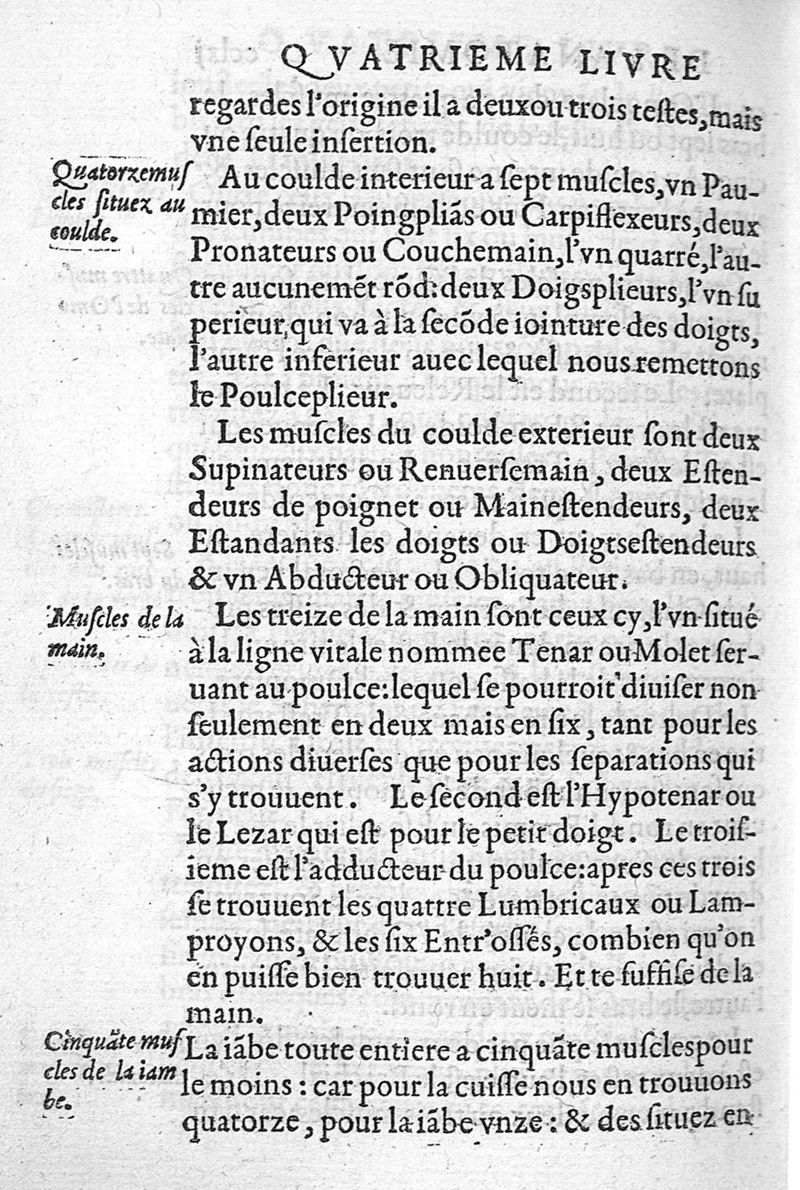 QVATRIEME LIVRE
regardes l'origine il a deux ou trois testes, mais
vne seule insertion.
Quatorze mus
cles situez au
coulde.
Au coulde interieur a sept muscles, vn Pau-
mier, deux Poingpliãs ou Carpiflexeurs, deux
Pronateurs ou Couchemain, l'vn quarré, l'au-
tre aucunemẽt rõd: deux Doigsplieurs, l'vn su
perieur, qui va à la secõde iointure des doigts,
l'autre inferieur auec lequel nous remettons
le Poulceplieur.
Les muscles du coulde exterieur sont deux
Supinateurs ou Renuersemain, deux Esten-
deurs de poignet ou Mainestendeurs, deux
Estandants les doigts ou Doigtsestendeurs
& vn Abducteur ou Obliquateur.
Muscles de la
main.
Les treize de la main sont ceux cy, l'vn situé
à la ligne vitale nommee Tenar ou Molet ser-
uant au poulce: lequel se pourroit diuiser non
seulement en deux mais en six, tant pour les
actions diuerses que pour les separations qui
s'y trouuent. Le second est l'Hypotenar ou
le Lezar qui est pour le petit doigt. Le trois-
ieme est l'adducteur du poulce: apres ces trois
se trouuent les quattre Lumbricaux ou Lam-
proyons, & les six Entr'ossés, combien qu'on
en puisse bien trouuer huit. Et te suffise de la
main.
Cinquãte mus
cles de la iam
be.
La iãbe toute entiere a cinquãte muscles pour
le moins: car pour la cuisse nous en trouuons
quatorze, pour la iãbe vnze: & des situez en